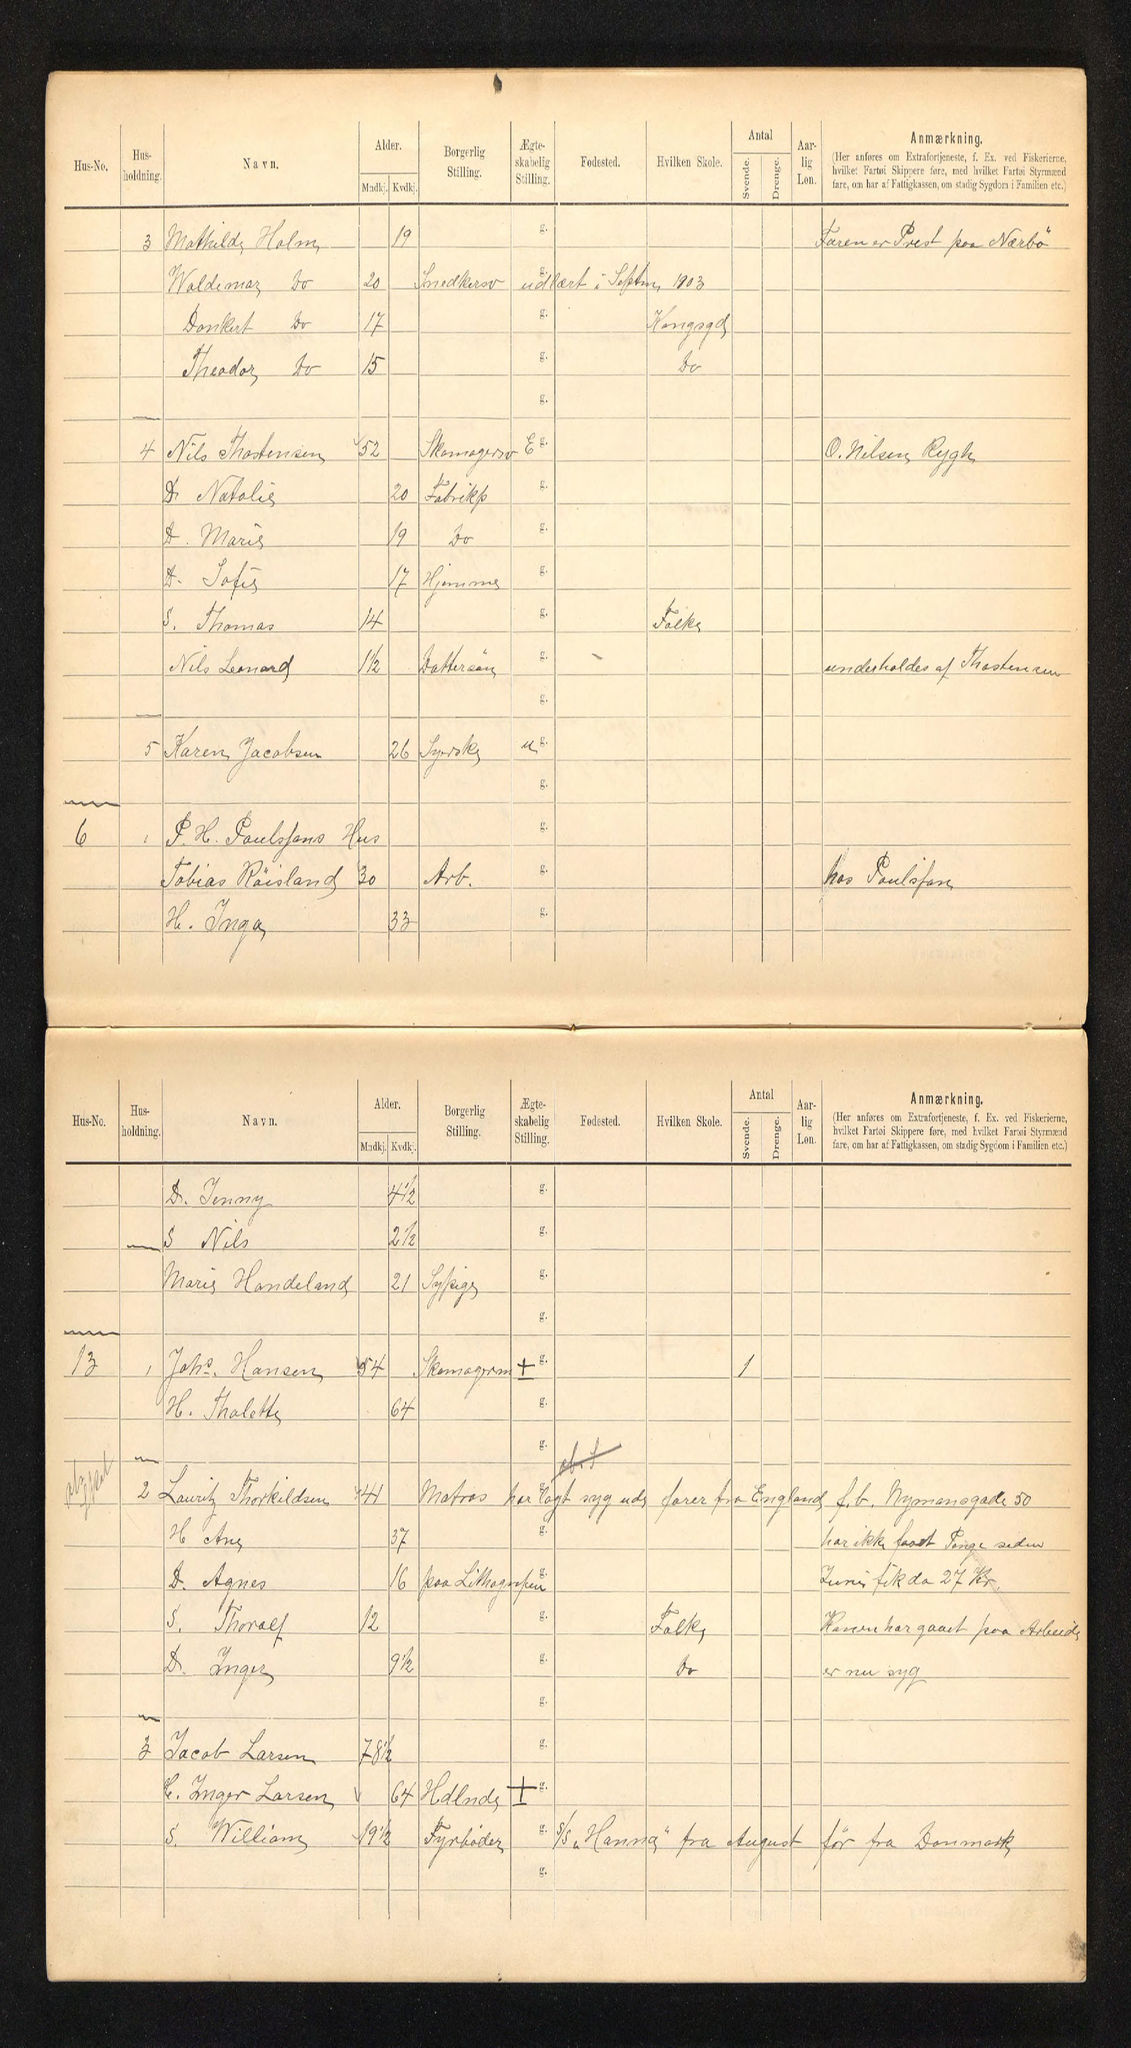 Hus-No. Hus-holdning. Navn. Alder. Mndkj. Kvdkj. Borgerlig Stilling. Ægte-skabelig Stilling. Fødested. Hvilken Skole. Antal Svende. Drenge. Aar-lig Løn. Anmærkning.
(Her anføres om Extrafortjeneste, f. Ex. ved Fiskerierne, hvilket Fartøi Skippere føre, med hvilket Fartøi Styrmænd fare, om har af Fattigkassen, om stadig Sygdom i Familien etc.)
3 Mathilde Holm 19 g. Faren er Prest paa Nærbö
Waldemar Do 20 Snedkersv g. udlært i Septm 1903
Dankert Do 17 g. Kongsgd
Theodor Do 15 g. Do
g.
4 Nils Thostensen 52 Skomagersv E g. O. Nilsen Rygh
D. Natalie 20 Fabrikp g.
D. Marie 19 Do g.
D. Sofie 17 Hjemme g.
S. Thomas 14 g. Folke
Nils Leonard 1 1/2 Dattersön g. underholdes af Thostensen
g.
5 Karen Jacobsen 26 Syerske u g.
g.
6 1 P. H. Poulssons Hus g.
Tobias Röisland 30 Arb. g. hos Poulsson
H. Inga 33 g.
Hus-No. Hus-holdning. Navn. Alder. Mndkj. Kvdkj. Borgerlig Stilling. Ægte-skabelig Stilling. Fødested. Hvilken Skole. Antal Svende. Drenge. Aar-lig Løn. Anmærkning.
(Her anføres om Extrafortjeneste, f. Ex. ved Fiskerierne, hvilket Fartøi Skippere føre, med hvilket Fartøi Styrmænd fare, om har af Fattigkassen, om stadig Sygdom i Familien etc.)
D. Jenny 4 1/2 g.
S Nils 2 1/2 g.
Marie Handeland 21 Sypige g.
g.
13 1 Johs. Hansen 54 Skomagerm + g. 1
H. Thalette 64 g.
g.
2 Lauritz Thorkildsen 41 Matros har lagt syg ude farer fra England f.b. Nymansgade 50
H Ane 37 g. har ikke faaet Penge siden
D. Agnes 16 paa Lithografien g. Juni fik da 27 Kr.
S. Thoralf 12 g. Folke Konen har gaaet paa Arbeide
D. Inger 9 1/2 g. Do er nu syg
g.
3 Jacob Larsen 78 1/2 g.
H. Inger Larsen 64 Hdlnde + g.
S. William 19 1/2 Fyrböder g. S/S "Hanna" fra August før fra Danmark
g.